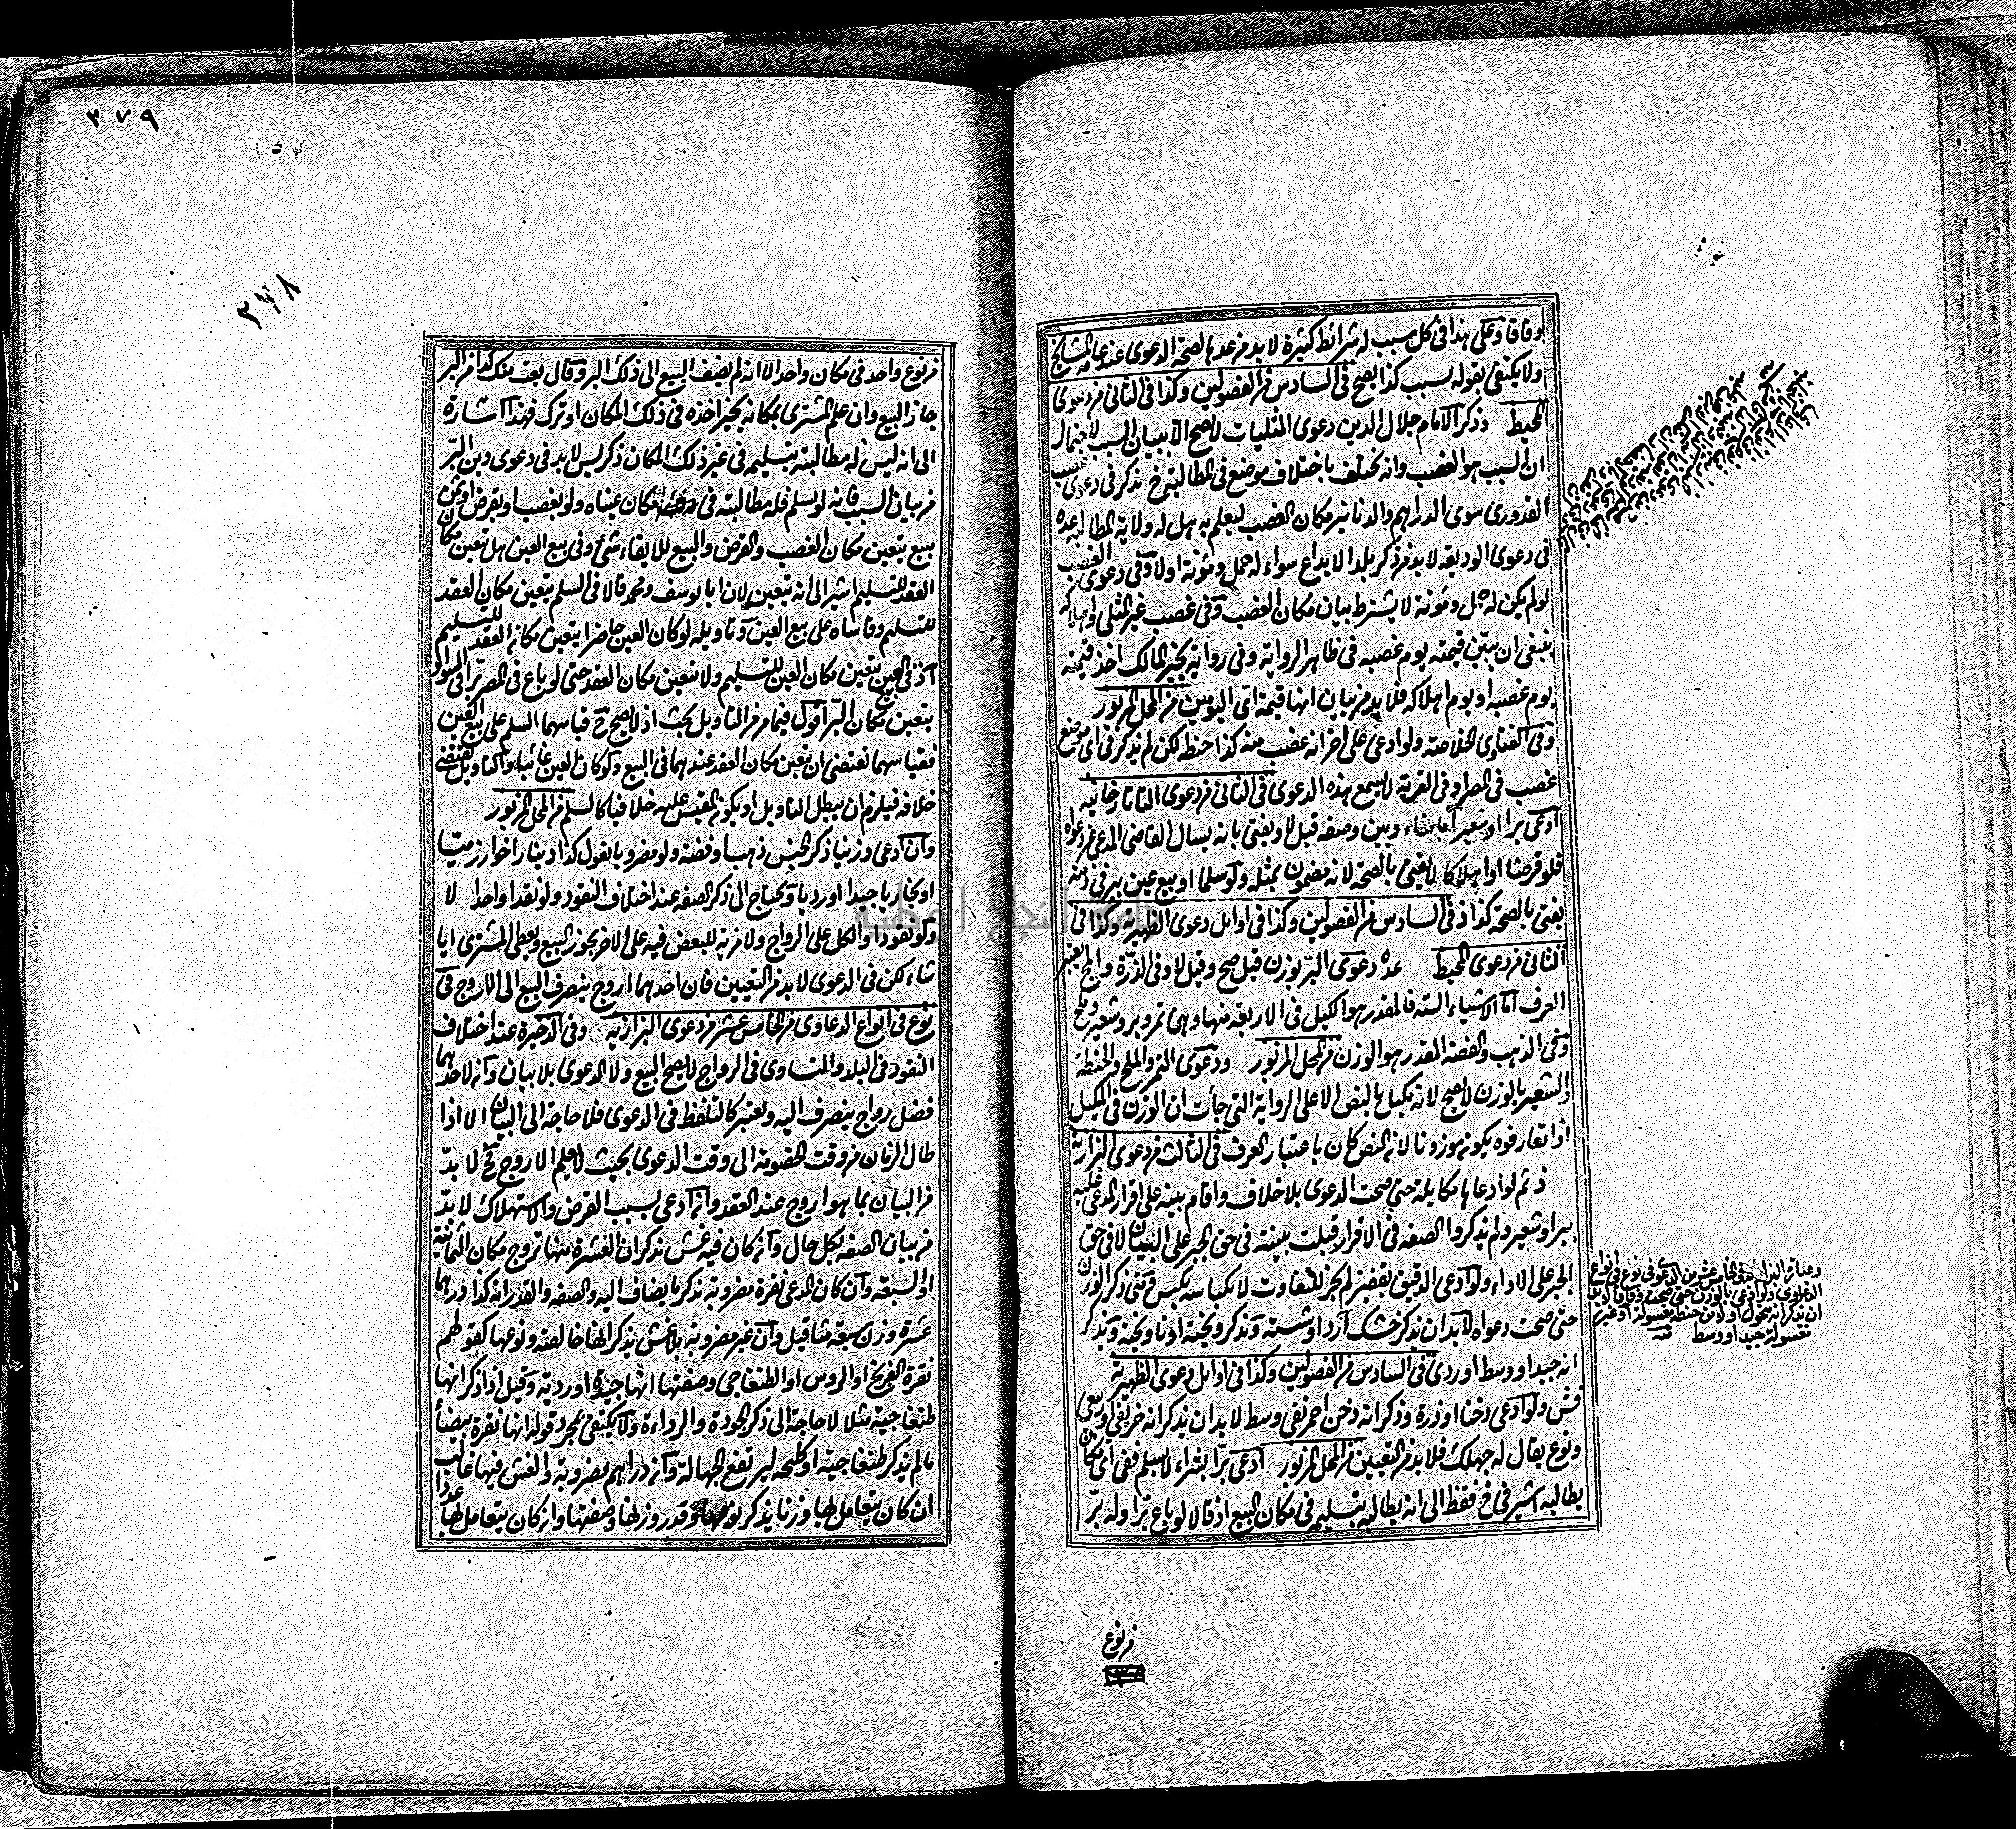 وفاقا وعلى هذا في كل سبب له شرائط كثيرة لا بد من عدها لصحة الدعوى عند عامة المشايخ
ولا يكتفى بقوله بسبب كذا يصح في السادس من الفصولين وكذا في الثاني من دعوى
المحيط وذكر الامام جلال الدين دعوى المثليات لا يصح الا ببيان السبب لاحتمال
ان السبب هو الغصب وانه يختلف باختلاف موضع في المطالبة خ يذكر في دعوى غصب
القدوري سوى الدراهم والدنانير مكان الغصب ليعلم به هل له ولاية المطالبة عده
في دعوى الوديعة لا بد من ذكر بلد الايداع سواء له حمل ومؤنة اولا وفي دعوى الغصب
لو لم يكن له حمل ومؤنة لا يشترط بيان مكان الغصب وفي غصب غير المثلي واهلاكه
ينبغي ان يبين قيمته يوم غصبه في ظاهر الرواية وفي رواية يخير المالك اخذ قيمته
يوم غصبه او يوم اهلاكه فلا بد من بيان انها قيمة اي اليومين من المحل المزبور
وفي الفتاوى الخلاصة ولو ادعى على اخر انه غصب منه كذا حنطة لكن لم يذكر في اي موضع
غصب في المصر او في القرية لا يسمع هذه الدعوى في الثاني من دعوى التاتارخانية
ادعى برا او شعيرا وبين وصفه قيل لا ويفتى بانه يسال القاضي المدعي عن دعواه
فلو قرضا او اهلاكا يفتى بالصحة لانه مضمون بمثله ولو سلما او بيع عين ببر في ذمته
يفتى بالصحة كذا ذ في السادس من الفصولين وكذا في اوائل دعوى الظهيرية وكذا في
الثاني من دعوى المحيط عده دعوى البر بوزن قيل صح وقيل لا وفي الذرة والمج يعتبر
العرف اما الاشياء الستة فالمقدر هو الكيل في الاربعة منها وهي تمر وبر وشعير وملح
وفي الذهب والفضة المقدر هو الوزن من المحل المزبور ودعوى التمر والملح والحنطة
والشعير بالوزن لا يصح لانه مكيل بالنص الا على الرواية التي جأت ان الوزن في المكيل
اذا تعارفوه يكون موزونا لانه النص كان باعتبار العرف في الثالث من دعوى البزازية
ذ ثم لو ادعاها مكايلة حتى صحت الدعوى بلا خلاف واقام بينة على اقرار المدعى عليه
ببر او شعير ولم يذكروا الصفة في الاقرار قبلت بينته في حق الجبر على البيان لا في حق
الجبر على الاداء ولو ادعى الدقيق بقفيز لم يجز للتفاوت لا نكباسه بكبس فمتى ذكر الوزن
حتى صحت دعواه لا بد ان يذكر خشك آرد او شسته ويذكر ويخته او ناويخته ويذكر
انه جيد او وسط او ردي في السادس من الفصولين وكذا في اوائل دعوى الظهيرية
فش ولو ادعى دخنا او ذرة وذكر انه دخن احمر نقي وسط لا بد ان يذكر انه خريفي او ربيعي
ونوع يقال له جهلك فلا بد من التعيين من المحل المزبور ادعى برا بشراء لا بسلم ففي اي مكان
يطالبه اشير في فقط الى انه يطالبه بتسليمه في مكان البيع اذ قالا لو باع برا وله بر
من نوع
وعبارة البزازية في الخامس عشر من الدعوى في نوع في انواع
الدعاوى ولو ادعى بالوزن حتى صحت وفاقا لا بد
ان يذكر انه منخول او لا من حنطة مغسولة او غير
مغسولة جيد او وسط
٣٧٩
٢٧٨
من نوع واحد في مكان واحد الا انه لم يضف البيع الى ذلك البر وقال بعت منك كذا من البر
جاز البيع وان علم المشتري بمكانه يخير اخذه في ذلك المكان او ترك فهذا اشارة
الى انه ليس له مطالبته بتسليمه في غير ذلك المكان ذكر بس لا بد في دعوى دين البر
من بيان السبب فانه لو بسلم فله مطالبته في مكان عيناه ولو بغصب او بقرض او ثمن
مبيع يتعين مكان الغصب والقرض والبيع للايفاء شمي وفي بيع العين هل تعين مكان
العقد للتسليم اشير الى انه يتعين لان ابا يوسف ومحمد قالا في السلم تعين مكان العقد
للتسليم وقاساه على بيع العين وتاويله لو كان العين حاضرا يتعين مكانه العقد للتسليم
اذ في بيع العين يتعين مكان العين للتسليم ولا يتعين مكان العقد حتى لو باع في المصر برا في السواد
يتعين مكان البر اقول فيما مر من التاويل بحث اذ لا يصح ح قياسهما السلم على بيع العين
فقياسهما يقتضي ان يتعين مكان العقد عندهما في البيع ولو كان العين غائبا والتاويل يقتضي
خلافه فيلزم ان يبطل التاويل او يكون المقيس عليه خلافيا كالسلم من المحل المزبور
وان ادعى وزنيا ذكر الجنس ذهبا وفضة ولو مضروبا بقول كذا دينارا خوارزميا
او بخاريا جيدا او رديا ويحتاج الى ذكر الصفة عند اختلاف النقود ولو نقدا واحدا لا
ولو نقودا والكل على الرواج ولا مزية للبعض فيه على الاخر يجوز البيع ويعطي المشتري ايا
شاء لكن في الدعوى لا بد من التعيين فان احدهما اروج ينصرف البيع الى الاروج في
نوع في انواع الدعاوى من الخامس عشر من دعوى البزازية وفي الذخيرة عند اختلاف
النقود في البلد والتساوي في الرواج لا يصح البيع ولا الدعوى بلا بيان وان لاحدهما
فضل رواج ينصرف اليه ويعتبر كالتلفظ في الدعوى فلا حاجة الى البيان الا اذا
طال الزمان من وقت الخصومة الى وقت الدعوى بحيث لا يعلم الاروج فح لا بد
من البيان بما هو اروج عند العقد وان ادعى بسبب القرض والاستهلاك لا بد
من بيان الصفة بكل حال وان كان فيه غش يذكر ان العشرة منها تروج مكان الثمانية
او السبعة وان كان المدعى نقرة مضروبة يذكر ما يضاف اليه والصفة والقدر انه كذا درهما
عشرة وزن سبعة مثاقيل وان غير مضروبة بلا غش يذكر انها خالصة ونوعها كقولهم
نقرة الفرنج او الروس او الطمغاجي وصفتها انها جيدة او ردية وقيل اذا ذكر انها
طمغاجية مثلا لا حاجة الى ذكر الجودة والرداءة ولا يكتفى بمجرد قوله انها نقرة بيضأ
ما لم يذكر طمغاجية او كليجه ليرتفع الجهالة وان دراهم مضروبة والغش فيها غالب
ان كان يتعامل بها وزنا يذكر نوعها وقدر وزنها وصفتها وان كان يتعامل بها عددا